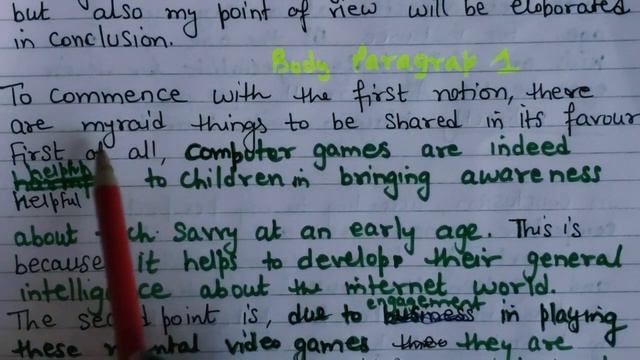 but also my point of view will be eloborated
in conclusion.
Body Paragrap 1
To commence with the first notion, there
are myraid things to be shared in its favour
First of all, computer games are indeed
helpful to children in bringing awareness
helpful
about tech savvy at an early age. This is
because it helps to develop their general
intelligence about the internet world.
The second point is, due to engagement in playing
these mental video games they are